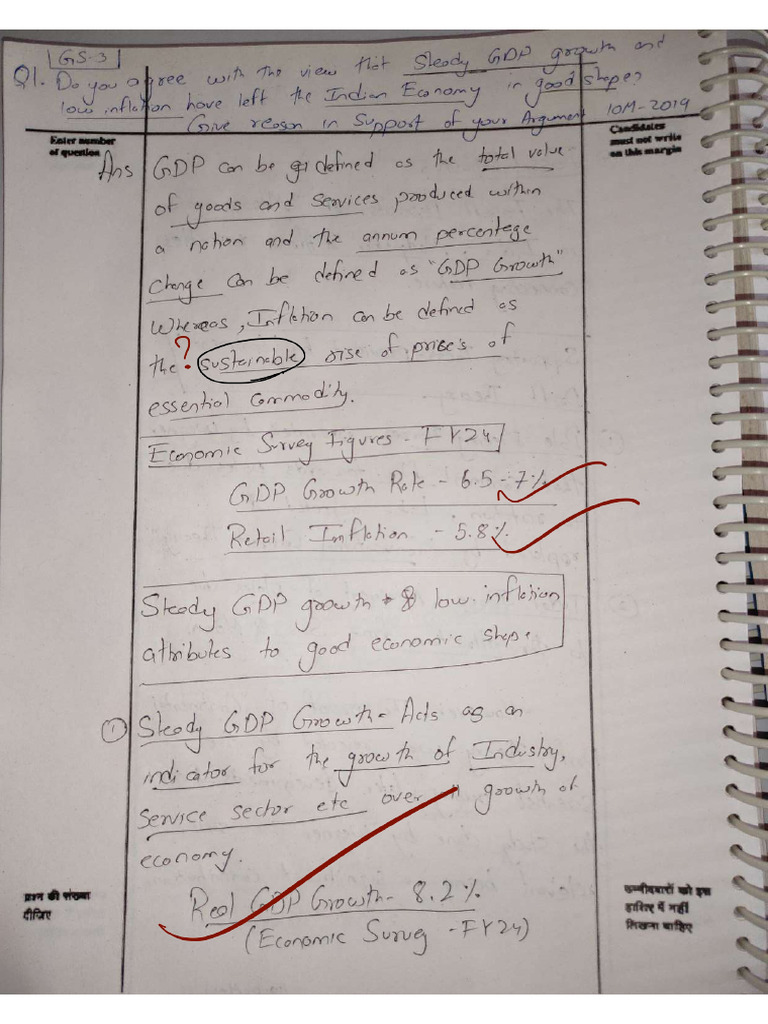 GS-3
Q1. Do you agree with the view that Steady GDP growth and
low inflation have left the Indian Economy in good shape?
Give reason in Support of your Argument 10M-2019
Enter number
of question
Candidates
must not write
on this margin
Ans GDP can be defined as the total value
of goods and services produced within
a nation and the annum percentege
change can be defined as "GDP Growth"
Whereas, Inflation can be defined as
the ? sustainable rise of prise's of
essential commodity.
Economic Survey Figures - FY24
GDP Growth Rate - 6.5-7%
Retail Inflation - 5.8%
Steady GDP growth & low inflation
attributes to good economic shape
① Steady GDP Growth - Acts as an
indicator for the growth of Industry,
Service sector etc over all growth of
economy.
Real GDP Growth - 8.2%
(Economic Survey - FY24)
प्रश्न की संख्या
दीजिए
उम्मीदवारों को इस
हाशिए में नहीं
लिखना चाहिए